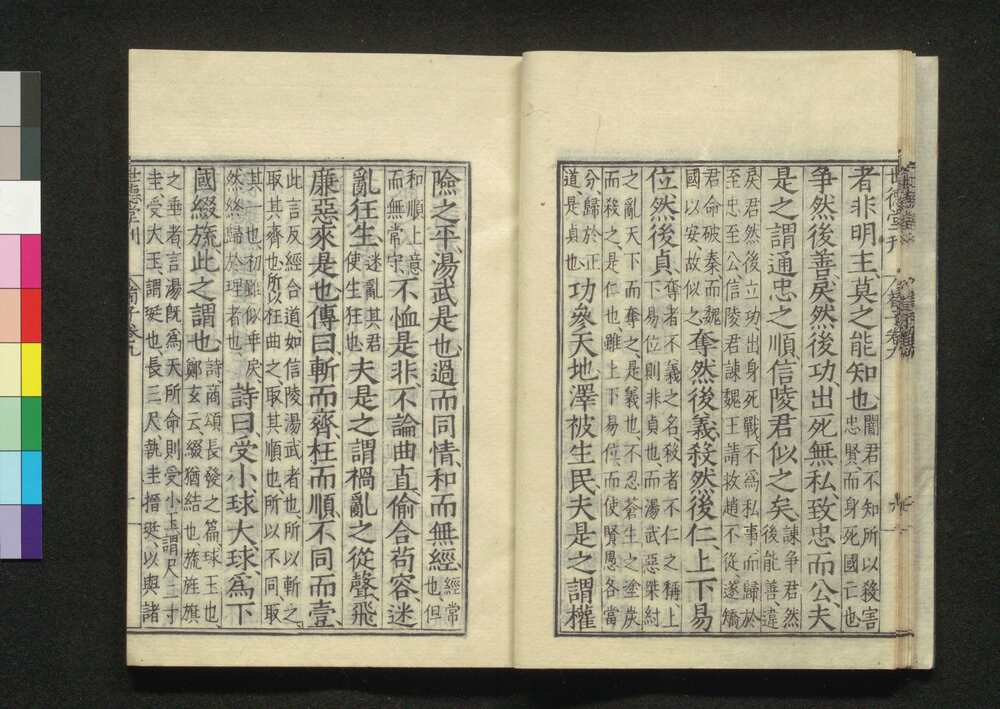 世德堂刊
者非明主莫之能知也
闇君不知所以殺害
忠賢而身死國亡也
爭然後善戾然後功出死無私致忠而公夫
是之謂通忠之順信陵君似之矣
諫爭君然
後能善違
戾君然後立功出身死戰不爲私事而歸於
至忠至公信陵君諫魏王請救趙不從遂矯
君命破秦而魏
國以安故似之
奪然後義殺然後仁上下易
位然後貞
奪者不義之名殺者不仁之稱上
下易位則非貞也而湯武惡桀紂
之亂天下而奪之是義也不忍蒼生之塗炭
而殺之是仁也雖上下易位而使賢愚各當
分歸於正
道是貞也
功參天地澤被生民夫是之謂權
險之平湯武是也過而同情和而無經
經常
也但
和順上意
而無常守
不恤是非不論曲直偷合苟容迷
亂狂生
迷亂其君
使生狂也
夫是之謂禍亂之從聲飛
廉惡來是也傳曰斬而齊枉而順不同而壹
此言反經合道如信陵湯武者也所以斬之
取其齊也所以枉曲之取其順也所以不同取
其一也初雖似乖戾
然終歸於理者也
詩曰受小球大球爲下
國綴旒此之謂也
詩商頌長發之篇球玉也
鄭玄云綴猶結也旒旌旗
之垂者言湯既爲天所命則受小玉謂尺二寸
圭受大玉謂珽也長三尺執圭搢珽以與諸
世德堂刊
荀子卷九